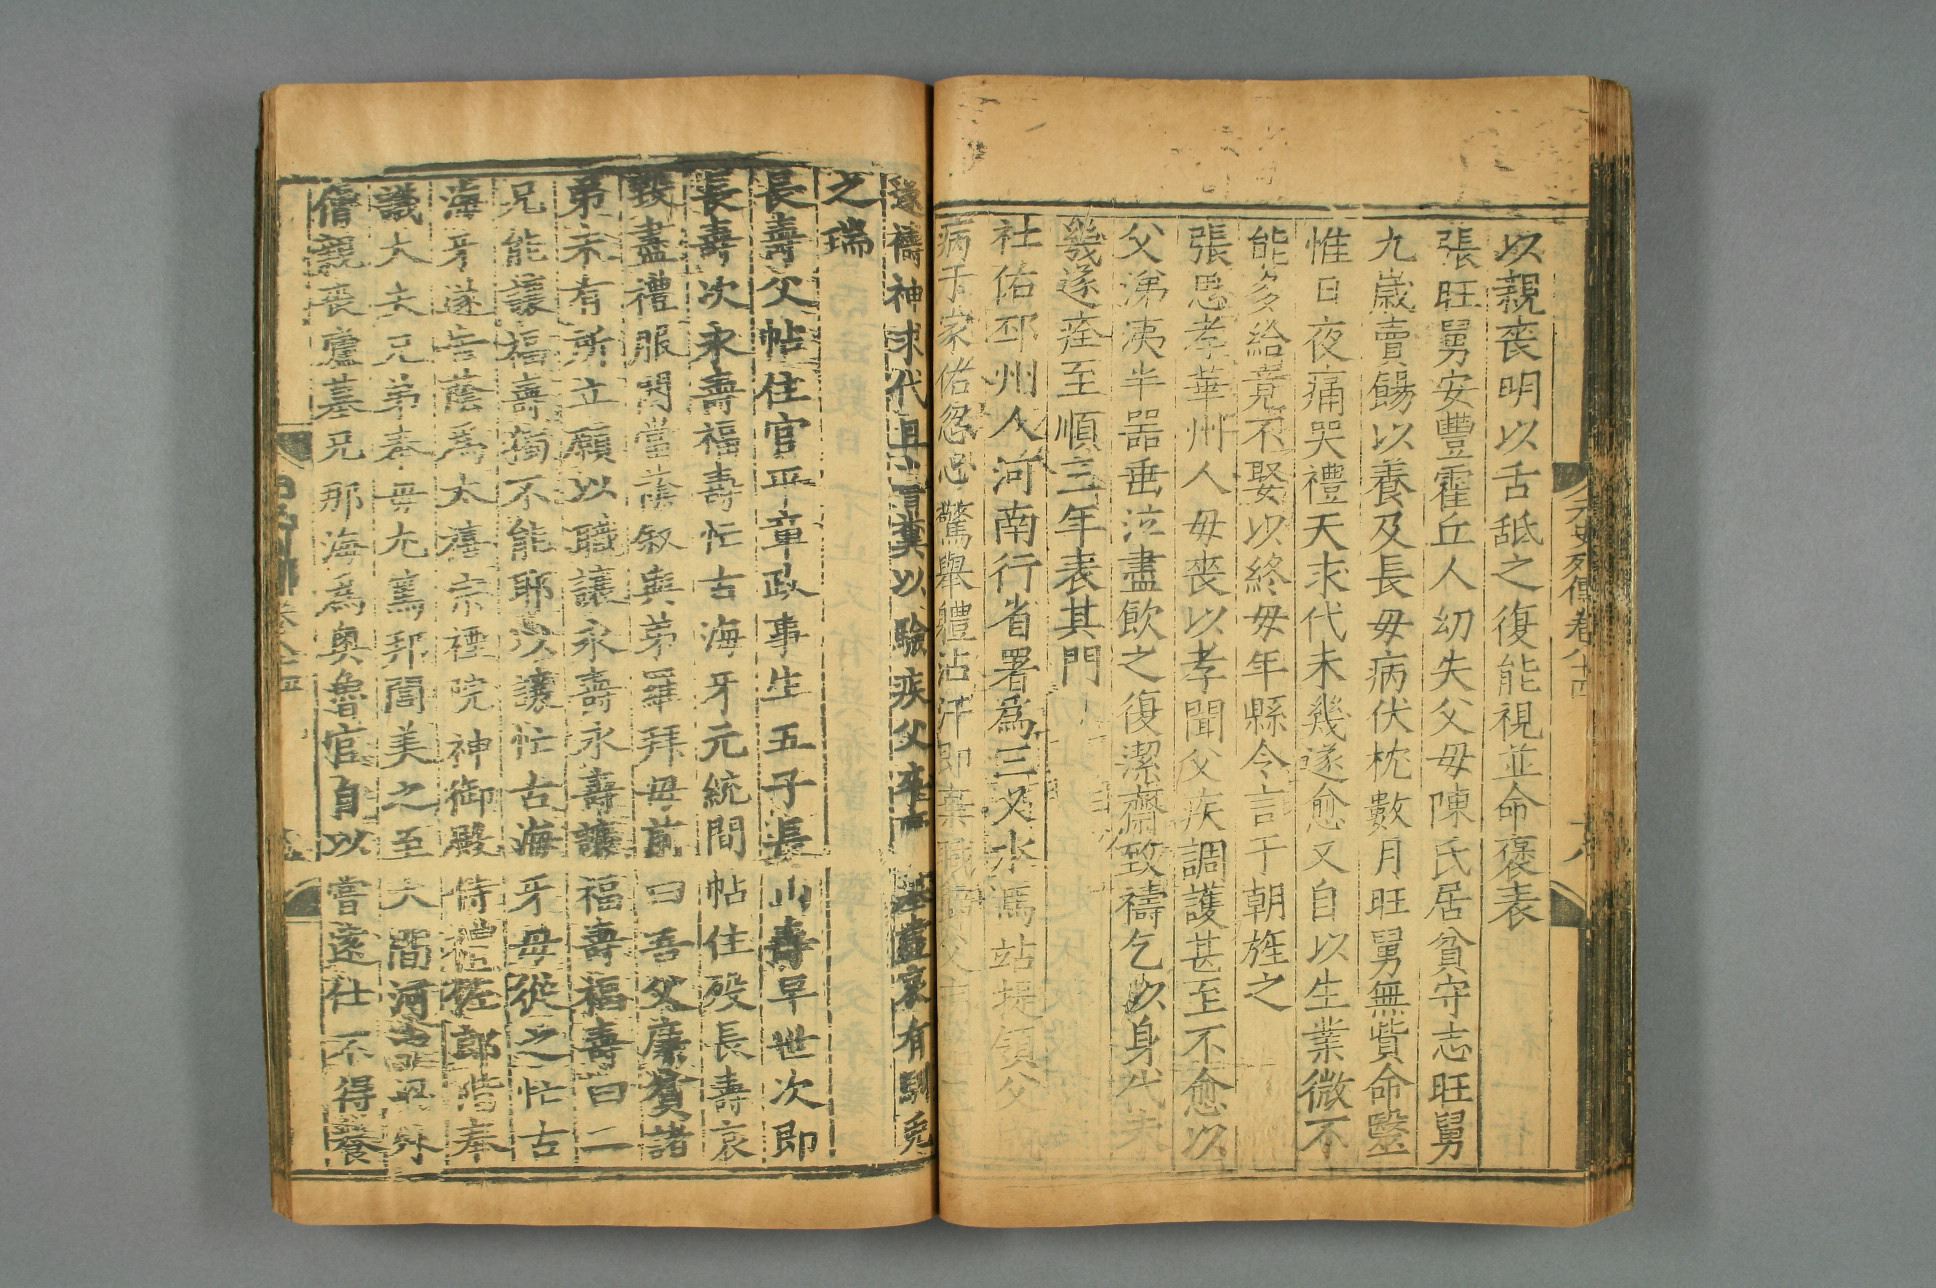 以親喪明以舌舐之復能視並命褒表
張旺舅安豐霍丘人幼失父母陳氏居貧守志旺舅
九歲賣餳以養及長母病伏枕數月旺舅無貲命醫
惟日夜痛哭禮天求代未幾遂愈又自以生業微不
能多給竟不娶以終母年縣令言于朝旌之
張思孝華州人母喪以孝聞父疾調護甚至不愈以
父涕洟半器垂泣盡飲之復潔齋致禱乞以身代未
幾遂痊至順三年表其門
杜佑邳州人河南行省署為三义水馬站提領父
病于家佑忽心驚舉體沾汗即棄職
遂禱神求代且嘗糞以驗疾父卒廬墓盡哀有馴兔
之瑞
長壽父帖住官平章政事生五子長山壽早世次即
長壽次永壽福壽忙古海牙元統間帖住歿長壽哀
毀盡禮服闋當蔭叙與弟羅拜母前曰吾父廉貧諸
弟未有所立願以職讓永壽永壽讓福壽福壽曰二
兄能讓福壽獨不能耶以讓忙古海牙母從之忙古
海牙遂告蔭為太禧宗禋院神御殿侍禮佐郎階奉
議大夫兄弟奉母尤篤邦閭美之至大間河
僧親喪廬墓兄那海為奧魯官自以嘗遠仕不得養
元史列傳卷八十四
十八
卷八十四